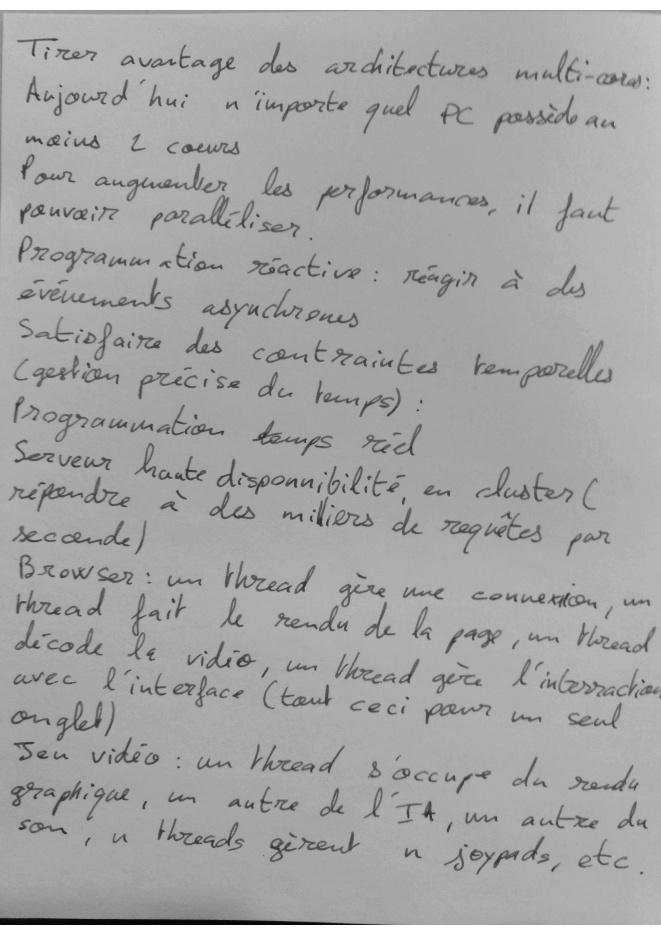 Tirer avantage des architectures multi-cores:
Aujourd'hui n'importe quel PC possède au
moins 2 coeurs
Pour augmenter les performances, il faut
pouvoir paralléliser.
Programmation réactive : réagir à des
événements asynchrones
Satisfaire des contraintes temporelles
(gestion précise du temps) :
Programmation temps réel
Serveur haute disponnibilité, en cluster (
répondre à des milliers de requêtes par
seconde)
Browser : un thread gère une connexion, un
thread fait le rendu de la page, un thread
décode la vidéo, un thread gère l'interraction
avec l'interface (tout ceci pour un seul
onglet)
Jeu vidéo : un thread s'occupe du rendu
graphique, un autre de l'IA, un autre du
son, n threads gèrent n joypads, etc.